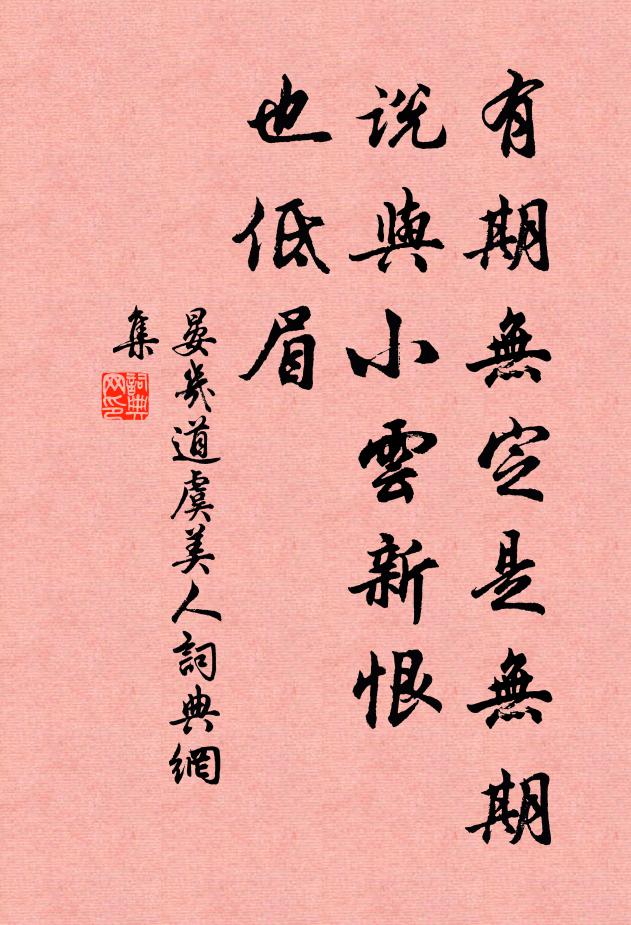 有期無定是無期
說與小雲新恨
也低眉
晏幾道虞美人詞典網
集
詞典
网印